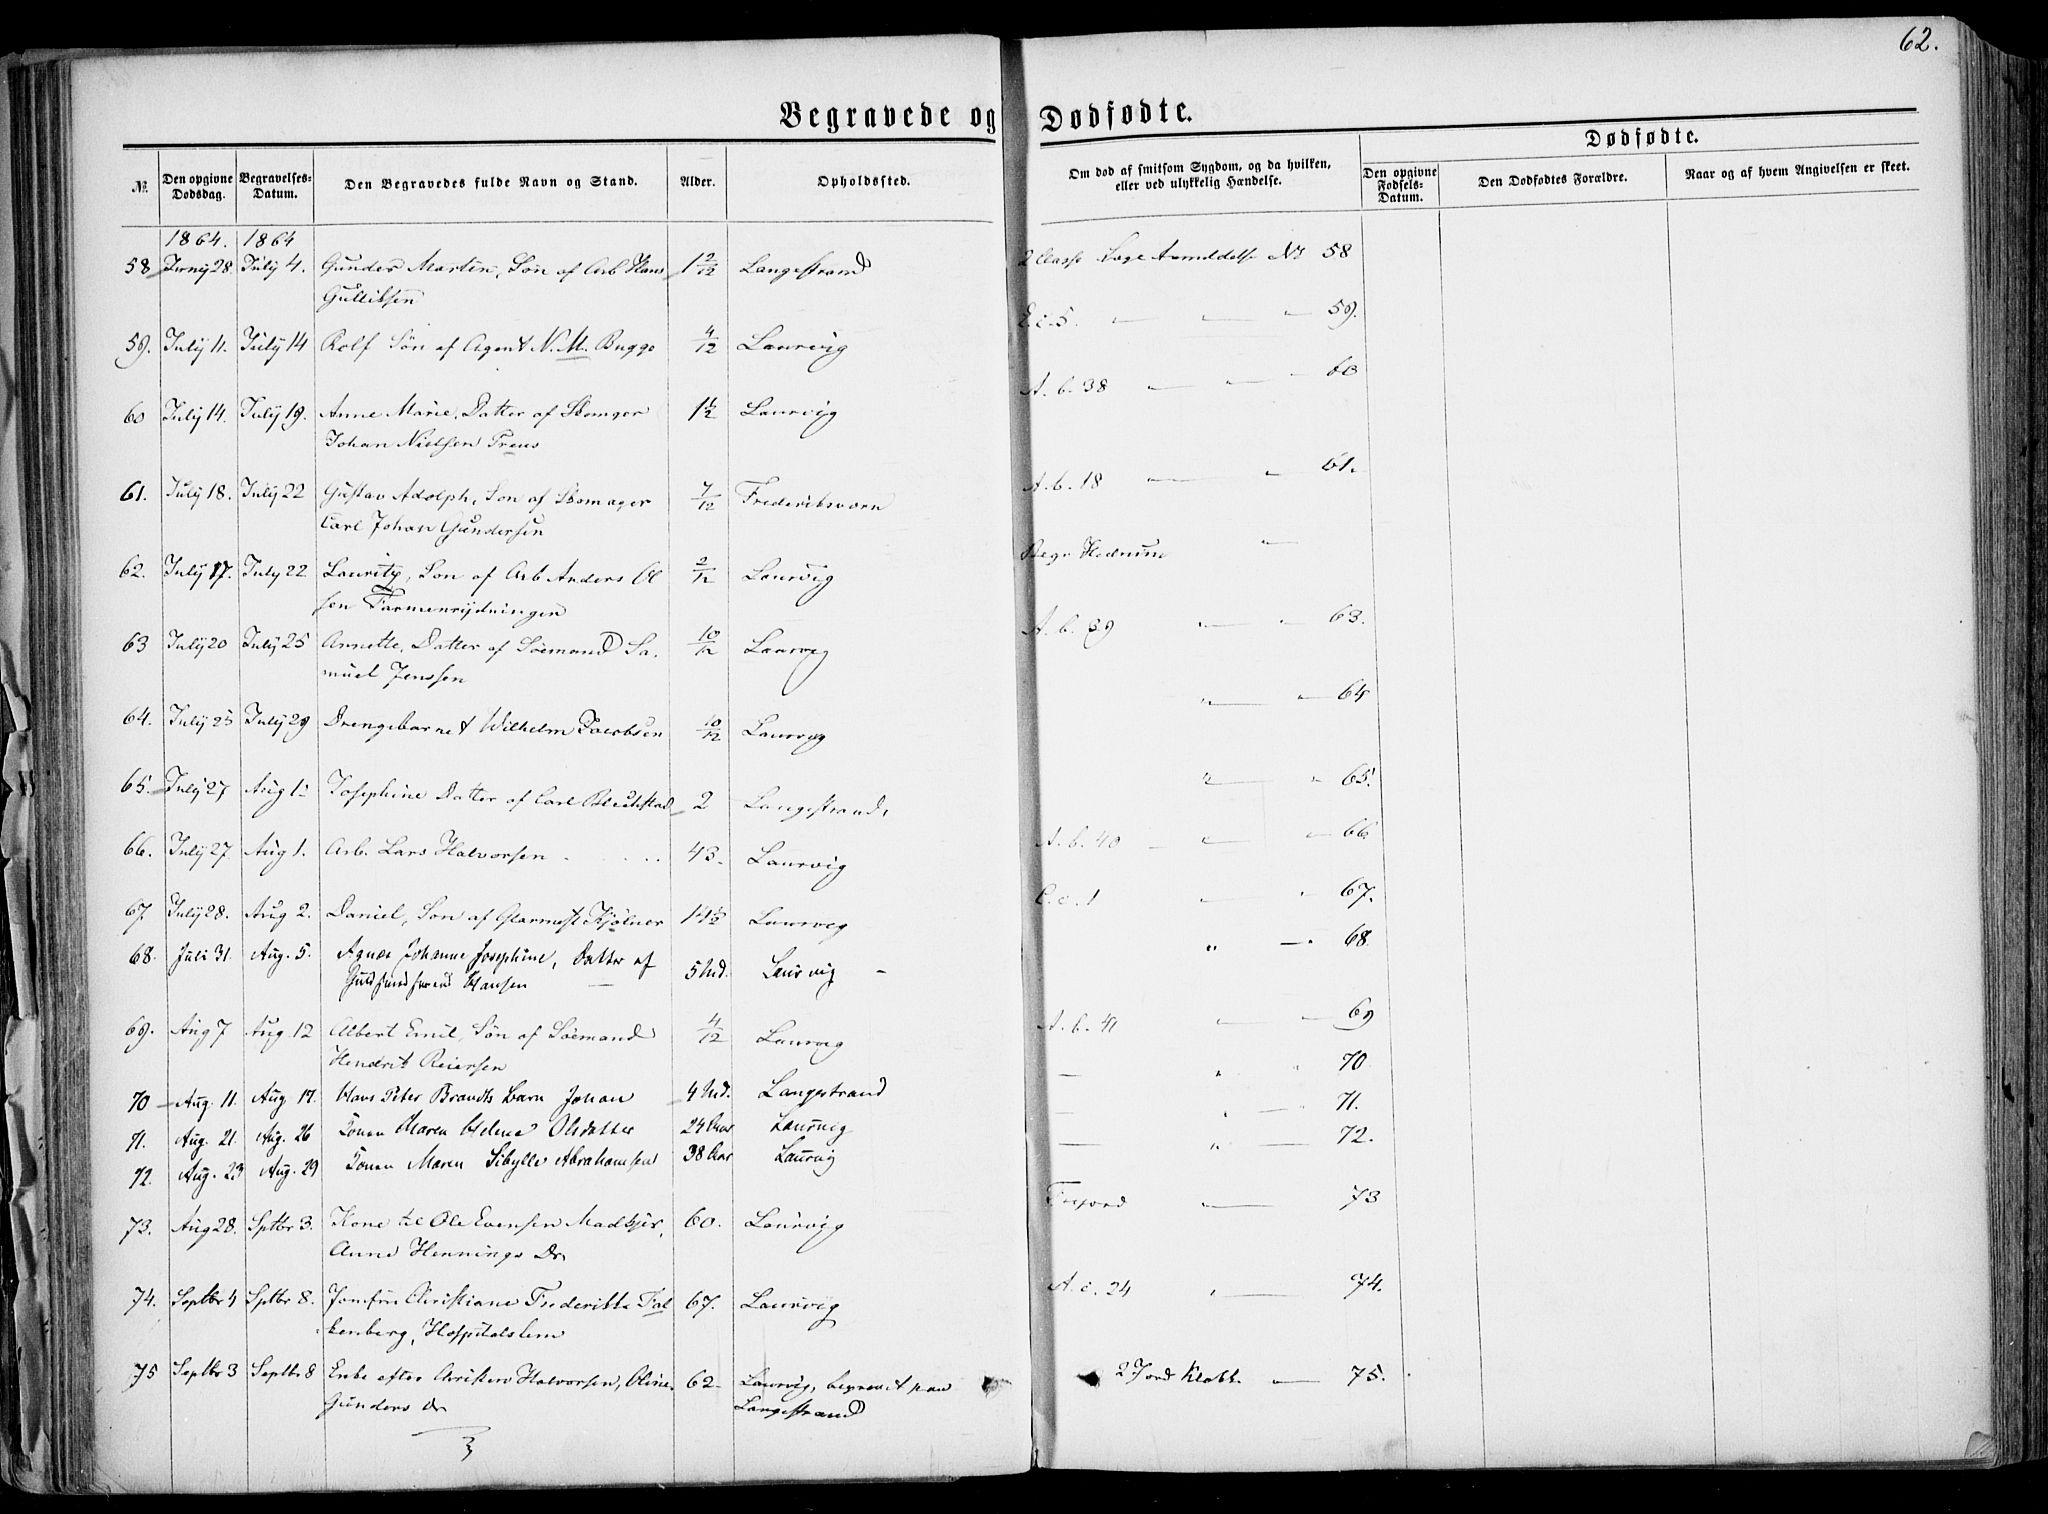 62.
Begravede og Dødfødte.
Dødfødte.
№
Den opgivne Dødsdag.
Begravelses-Datum.
Den Begravedes fulde Navn og Stand.
Alder.
Opholdssted.
Om død af smitsom Sygdom, og da hvilken, eller ved ulykkelig Hændelse.
Den opgivne Fødsels-Datum.
Den Dødfødtes Forældre.
Naar og af hvem Angivelsen er skeet.
1864. 1864
58 Juny 28. July 4. Gunder Martin, Søn af Arb Hans 1 2/12 Langestrand 2 Classe № 58
Gulliksen
59. July 11. July 14 Rolf Søn af Agent N. M. Bugge 4/12 Laurvig E. c. 5. " " " 59.
60 July 14. July 19. Anne Marie, Datter af Skomager 1 1/2 Laurvig A. b. 38 " " " 60
Johan Nielsen
61. July 18. July 22 Gustav Adolph, Søn af Skomager 7/12 Frederiksværn A. b. 18 " " 61.
Carl Johan Gundersen
62. July 17. July 22 Lauritz, Søn af Arb Anders Ol 2/12 Laurvig Begr Hedrum "
sen Farmenrydningen
63 July 20 July 25 Annette, Datter af Søemand Sa- 10/12 Laurvig A. b. 39 " " 63.
muel Jenssen
64. July 25 July 29 Drengebarnet Wilhelm Jacobsen 10/12 Laurvig " " 64
65. July 27 Aug 1. Josephine Datter af Carl 2 Langestrand, " " 65.
66. July 27 Aug 1. Arb. Lars Halvorsen 43. Laurvig A. b. 40 " " 66.
67 July 28. Aug 2. Daniel, Søn af Glarmest Kjølner Laurvig C. c. 1 " " 67.
68. Juli 31. Aug. 5. Agnes Johanne Josephine, Datter af 5 Md. Laurvig - " " 68.
Hansen
69. Aug 7 Aug 12 Albert Emil, Søn af Søemand 4/12 Laurvig A. b. 41 " " 69
Hendrik Reiersen
70 Aug. 11. Aug. 17. Hans Peter Brandts Barn Johan 4 Md. Langestrand " " 70
71. Aug. 21. Aug. 26 Maren Helene Olsdatter 24 Aar Laurvig " " 71.
72. Aug. 23 Aug. 29 Maren Sibylle Abrahamsen 38 Aar Laurvig " 72.
73. Aug 28. Sptbr 3. Kone til Ole Evensen Madkjer, 60. Laurvig " 73
Anne Hennings Dr
74. Septbr 4 Sptbr 8. Jomfru Christiane Frederikke Fal 67. Laurvig A. c. 24 " 74.
kenberg, Hospitalslem
75 Septbr 3 Septbr 8 Enke efter Christen Halvorsen, Oline 62 Laurvig, begravet paa 2 Jord Klokk. " 75.
Gunders Dr Langestrand